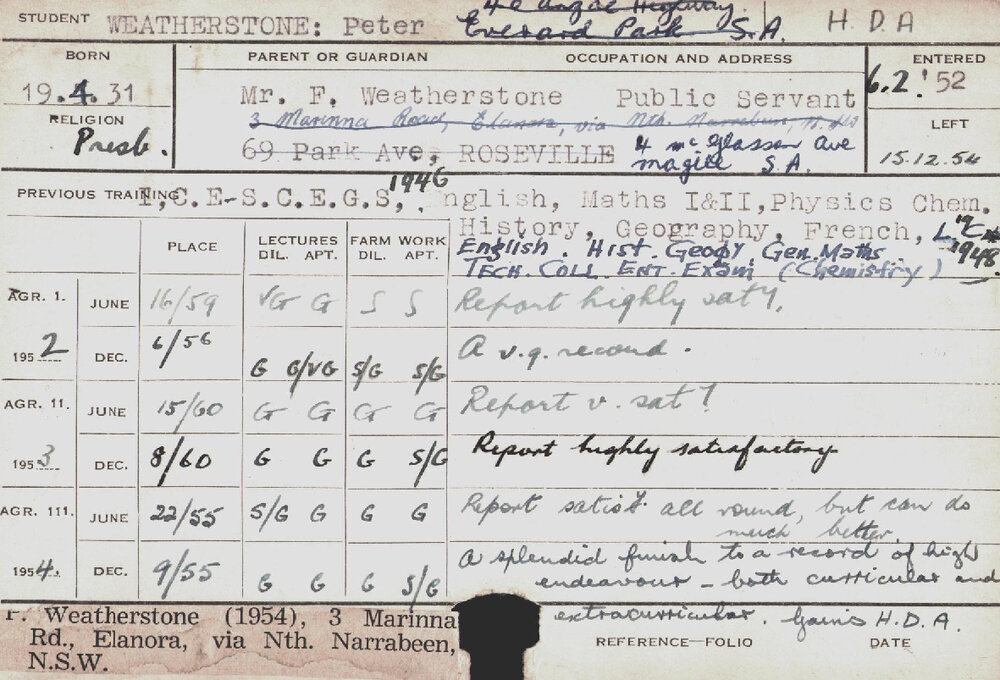 STUDENT WEATHERSTONE: Peter Highway. H.D.A
Everard Park S.A.
BORN PARENT OR GUARDIAN OCCUPATION AND ADDRESS ENTERED
19.4.31 Mr. F. Weatherstone Public Servant 6.2.'52
RELIGION 3 Marinna Road, Elanora, via Nth. Narrabeen, LEFT
Presb. 69 Park Ave, ROSEVILLE 4 McGlasson Ave
magill S.A. 15.12.54
PREVIOUS TRAINING F.C.E-S.C.E.G.S, 1946 English, Maths I&II, Physics Chem.
History, Geography, French,
PLACE LECTURES FARM WORK English. Hist. Geogy. Gen. Maths 1948.
DIL. APT. DIL. APT. TECH. COLL. ENT. EXAM (Chemistry)
AGR. 1. JUNE 16/59 VG G S S Report highly saty.
1952 DEC. 6/56 G G/VG S/G S/G A v.g. record.
AGR. 11. JUNE 15/60 G G G G Report v. saty
1953 DEC. 8/60 G G G S/G Report highly satisfactory
AGR. 111. JUNE 22/55 S/G G G G Report satisfy. all round, but can do
much better.
1954. DEC. 9/55 G G G S/G A splendid finish to a record of high
endeavour - both curricular and
extracurricular. Gains H.D.A.
F. Weatherstone (1954), 3 Marinna
Rd., Elanora, via Nth. Narrabeen,
N.S.W.
REFERENCE-FOLIO DATE